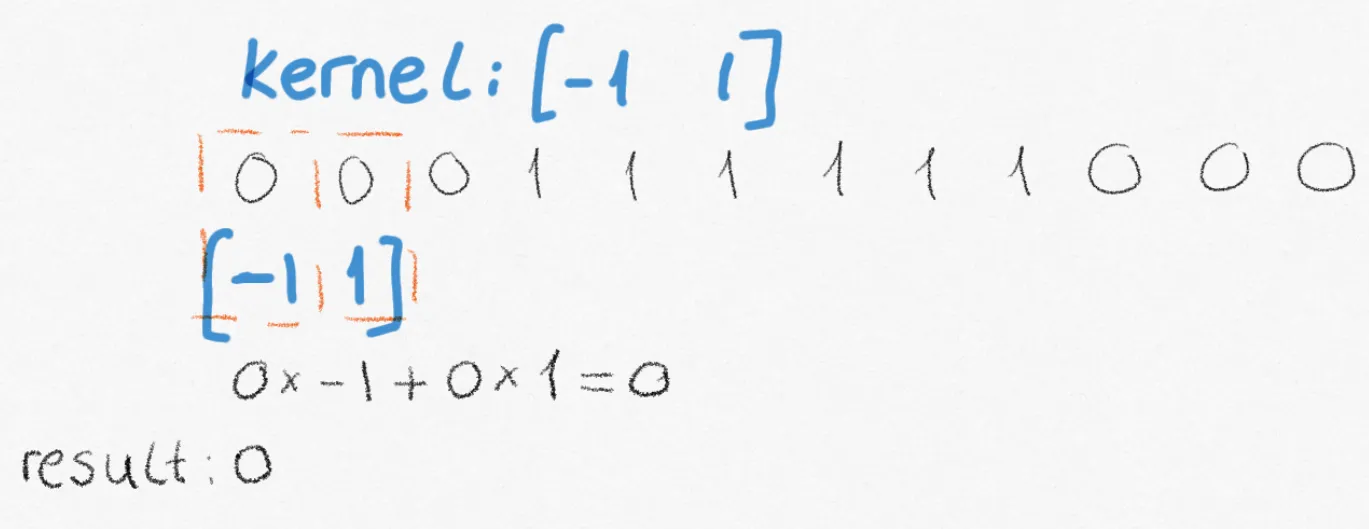 kernel: [-1 1]
0 0 0 1 1 1 1 1 1 0 0 0
[-1 1]
0 × -1 + 0 × 1 = 0
result: 0